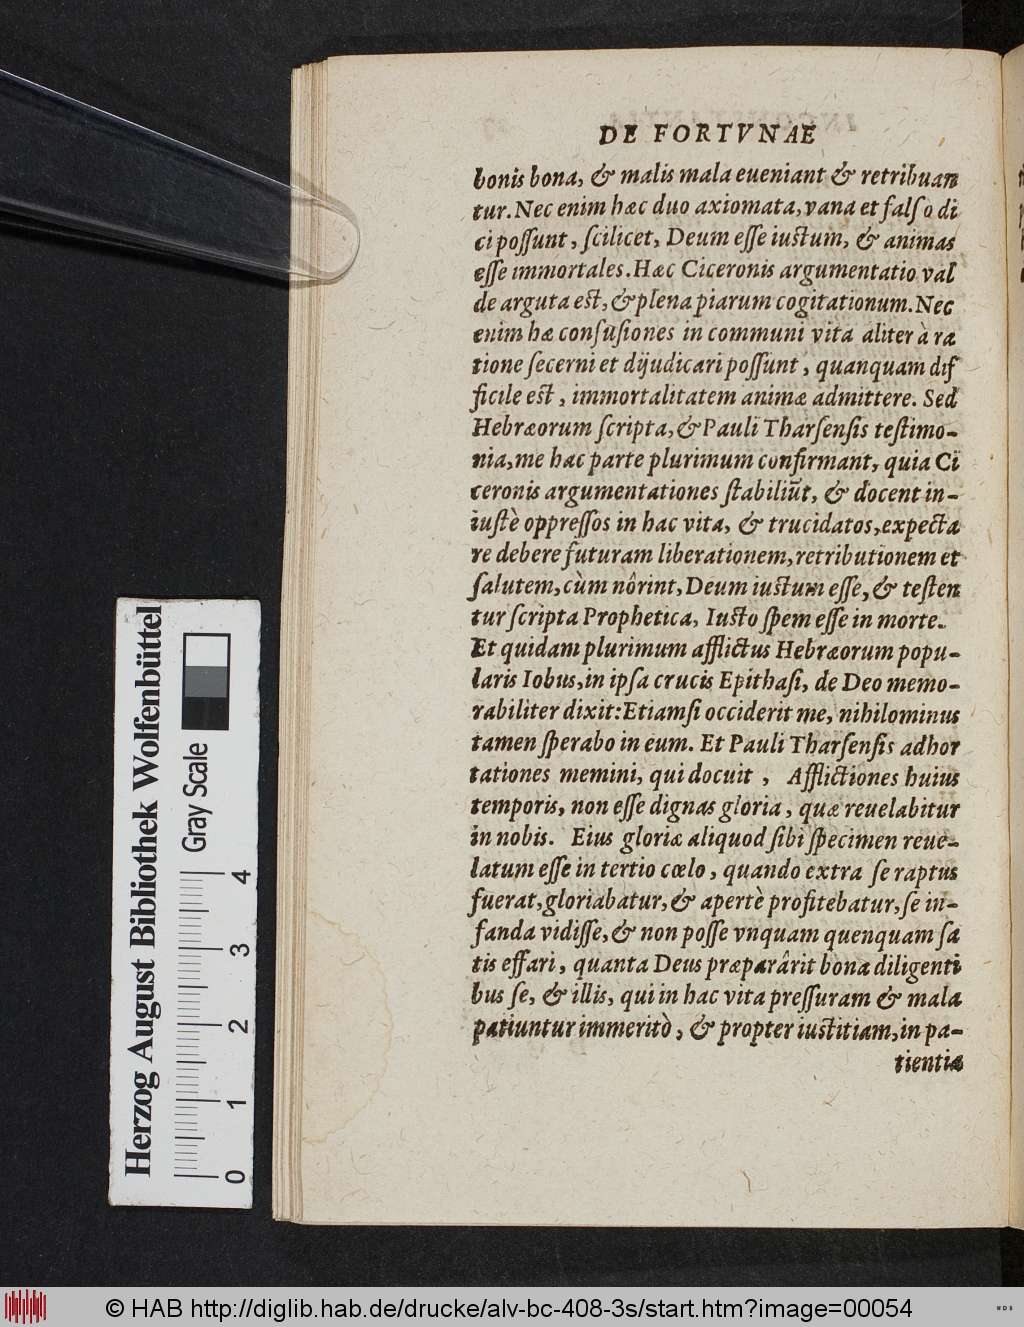 DE FORTVNAE
bonis bona, & malis mala eueniant & retribuan
tur. Nec enim hæc duo axiomata, vana et falſo di
ci poſſunt, ſcilicet, Deum eſſe iustum, & animas
eſſe immortales. Hæc Ciceronis argumentatio val
de arguta est, & plena piarum cogitationum. Nec
enim hæ confuſiones in communi vita aliter à ra
tione ſecerni et dijudicari poſſunt, quanquam dif
ficile est, immortalitatem animæ admittere. Sed
Hebræorum ſcripta, & Pauli Tharſenſis teſtimo-
nia, me hac parte plurimum confirmant, quia Ci
ceronis argumentationes ſtabiliūt, & docent in-
iuſtè oppreſſos in hac vita, & trucidatos, expecta
re debere futuram liberationem, retributionem et
ſalutem, cùm nôrint, Deum iustum eſſe, & teſten
tur ſcripta Prophetica, Iusto ſpem eſſe in morte.
Et quidam plurimum afflictus Hebræorum popu-
laris Iobus, in ipſa crucis Epithaſi, de Deo memo-
rabiliter dixit: Etiamſi occiderit me, nihilominus
tamen ſperabo in eum. Et Pauli Tharſenſis adhor
tationes memini, qui docuit, Afflictiones huius
temporis, non eſſe dignas gloria, quæ reuelabitur
in nobis. Eius gloriæ aliquod ſibi ſpecimen reue-
latum eſſe in tertio cœlo, quando extra ſe raptus
fuerat, gloriabatur, & apertè profitebatur, ſe in-
fanda vidiſſe, & non poſſe vnquam quenquam ſa
tis effari, quanta Deus præparârit bona diligenti
bus ſe, & illis, qui in hac vita preſſuram & mala
patiuntur immeritò, & propter iustitiam, in pa-
tientia
Herzog August Bibliothek Wolfenbüttel
Gray Scale
0 1 2 3 4
© HAB http://diglib.hab.de/drucke/alv-bc-408-3s/start.htm?image=00054
WDB